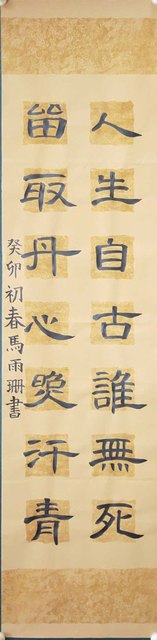 人生自古誰無死
畱取丹心照汗青
癸卯初春馬雨珊書